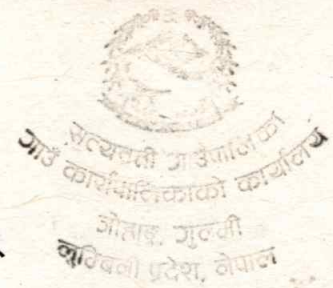 सत्यवती गाउँपालिका
गाउँ कार्यपालिकाको कार्यालय
जोहाङ, गुल्मी
लुम्बिनी प्रदेश, नेपाल